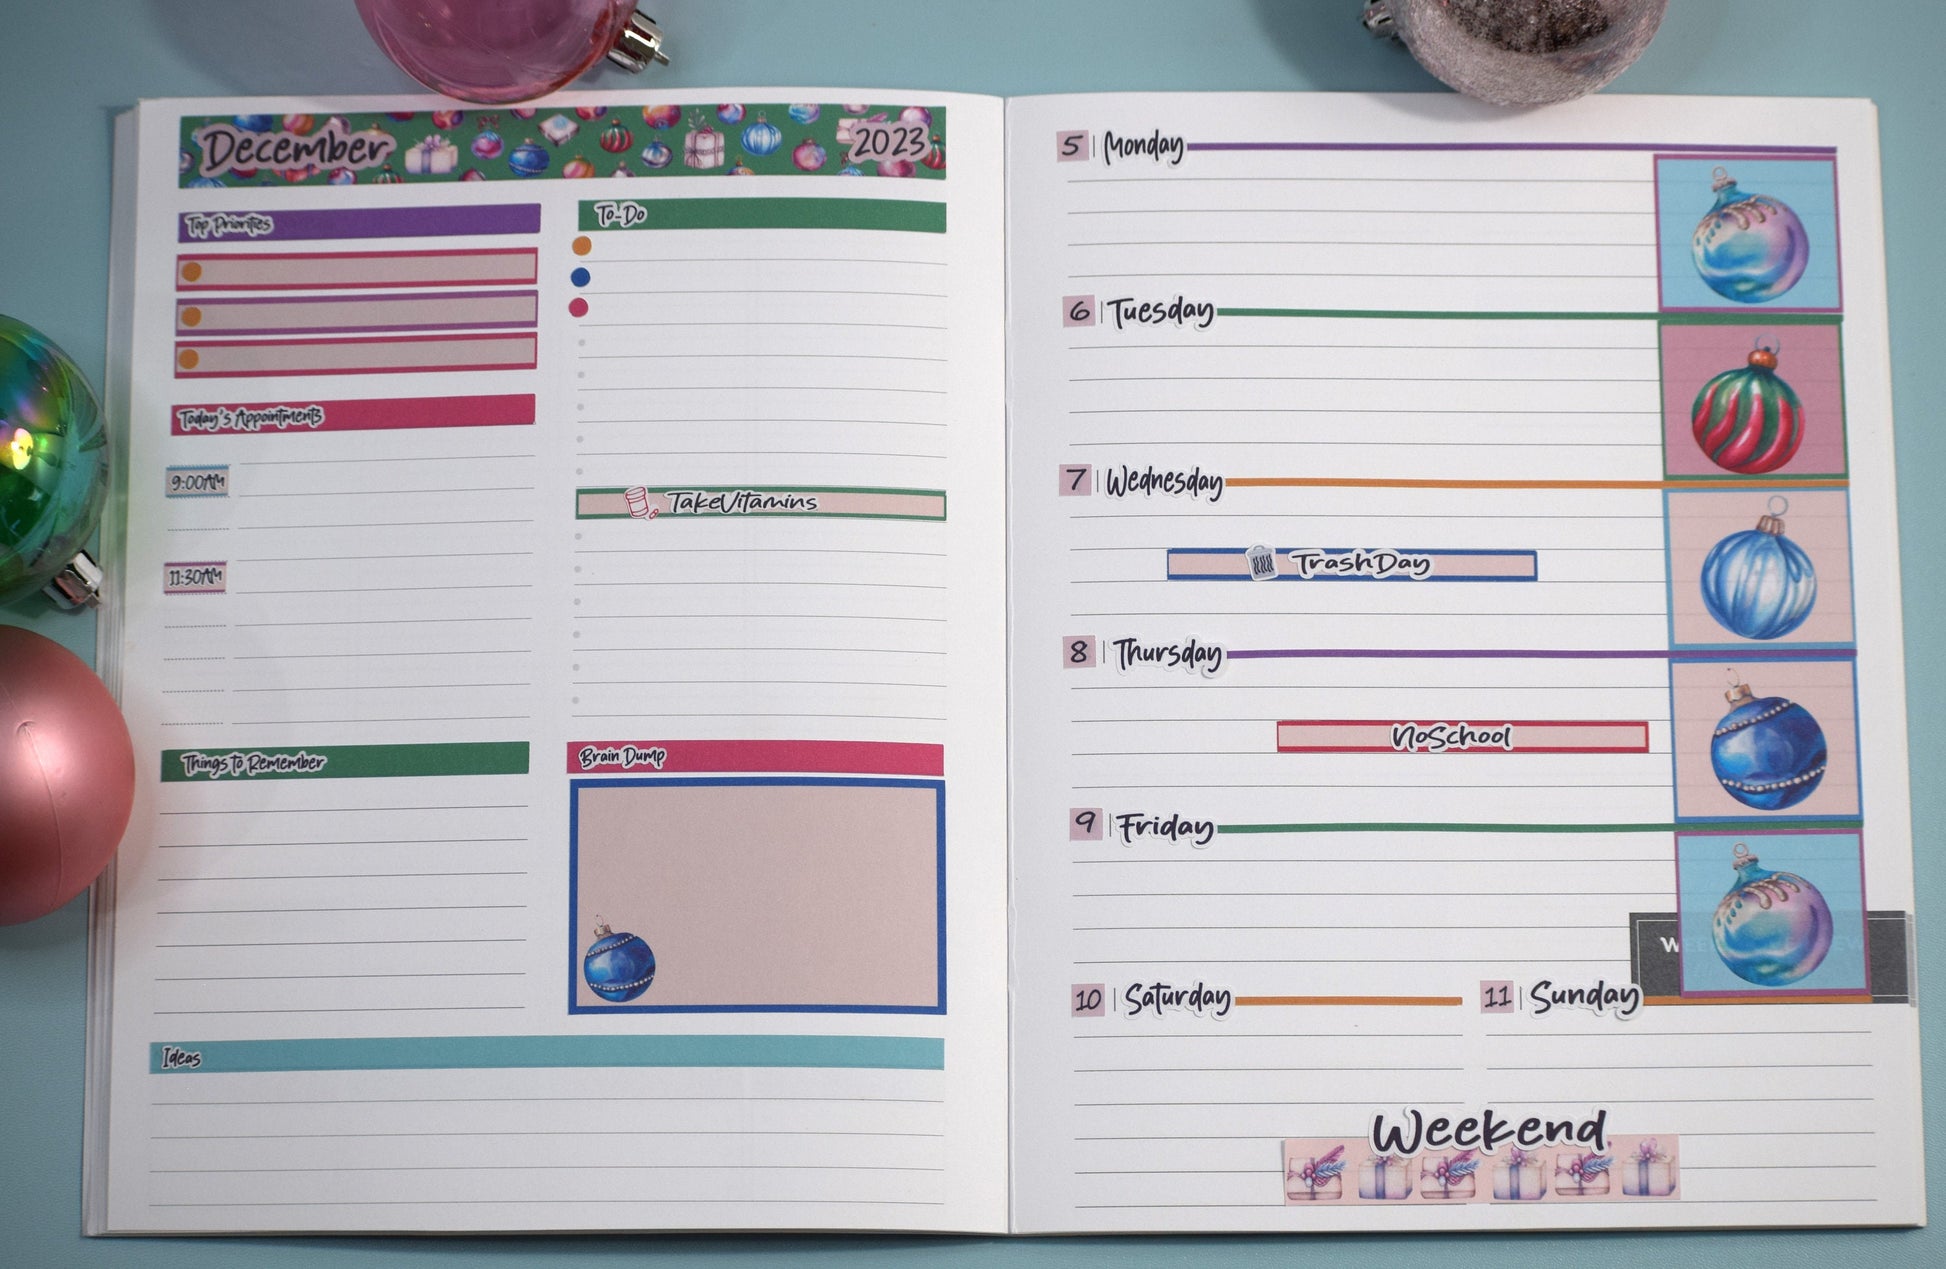 December 2023
Top Priorities
To-Do
Today's Appointments
9:00AM
11:30AM
TakeVitamins
Things to Remember
Brain Dump
Ideas
5 Monday
6 Tuesday
7 Wednesday
TrashDay
8 Thursday
NoSchool
9 Friday
10 Saturday
11 Sunday
Weekend